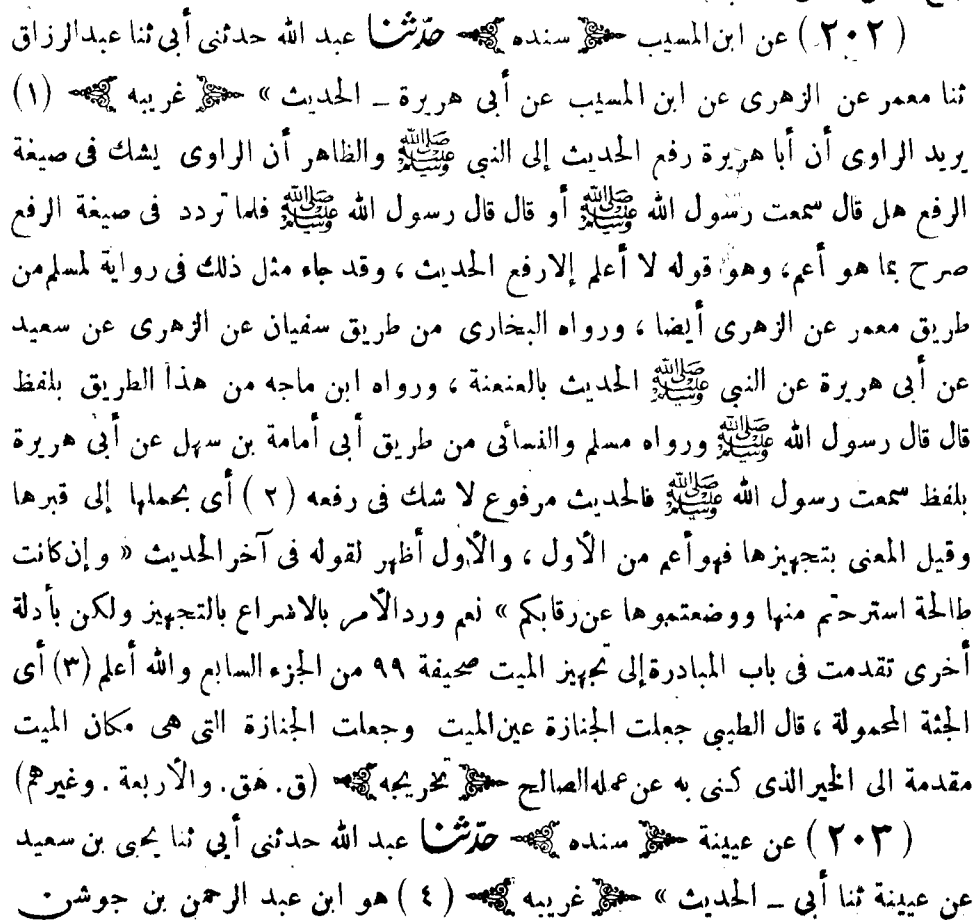 ( ٢٠٢ ) عن ابن المسيب ﴿ سنده ﴾ حدّثنا عبد الله حدثنى أبى ثنا عبدالرزاق
ثنا معمر عن الزهرى عن ابن المسيب عن أبى هريرة ـ الحديث » ﴿ غريبه ﴾ (١)
يريد الراوى أن أبا هريرة رفع الحديث إلى النبى ﷺ والظاهر أن الراوى يشك فى صيغة
الرفع هل قال سمعت رسول الله ﷺ أو قال قال رسول الله ﷺ فلما تردد فى صيغة الرفع
صرح بما هو أعم، وهو قوله لا أعلم إلارفع الحديث ، وقد جاء مثل ذلك فى رواية لمسلم من
طريق معمر عن الزهرى أيضا ، ورواه البخارى من طريق سفيان عن الزهرى عن سعيد
عن أبى هريرة عن النبى ﷺ الحديث بالعنعنة ، ورواه ابن ماجه من هذا الطريق بلفظ
قال قال رسول الله ﷺ ورواه مسلم والنسائى من طريق أبى أمامة بن سهل عن أبى هريرة
بلفظ سمعت رسول الله ﷺ فالحديث مرفوع لا شك فى رفعه ( ٢ ) أى بحملها إلى قبرها
وقيل المعنى بتجهيزها فهو أعم من الأول ، والأول أظهر لقوله فى آخر الحديث « وإن كانت
طالحة استرحتم منها ووضعتموها عن رقابكم » نعم ورد الأمر بالاسراع بالتجهيز ولكن بأدلة
أخرى تقدمت فى باب المبادرة إلى تجهيز الميت صحيفة ٩٩ من الجزء السابع والله أعلم (٣) أى
الجثة المحمولة ، قال الطيبى جعلت الجنازة عين الميت وجعلت الجنازة التى هى مكان الميت
مقدمة الى الخير الذى كنى به عن عمله الصالح ﴿ تخريجه ﴾ (ق. هق. والأربعة . وغيرهم)
( ٢٠٣ ) عن عيينة ﴿ سنده ﴾ حدّثنا عبد الله حدثنى أبي ثنا يحيى بن سعيد
عن عيينة ثنا أبي ـ الحديث » ﴿ غريبه ﴾ ( ٤ ) هو ابن عبد الرحمن بن جوشن